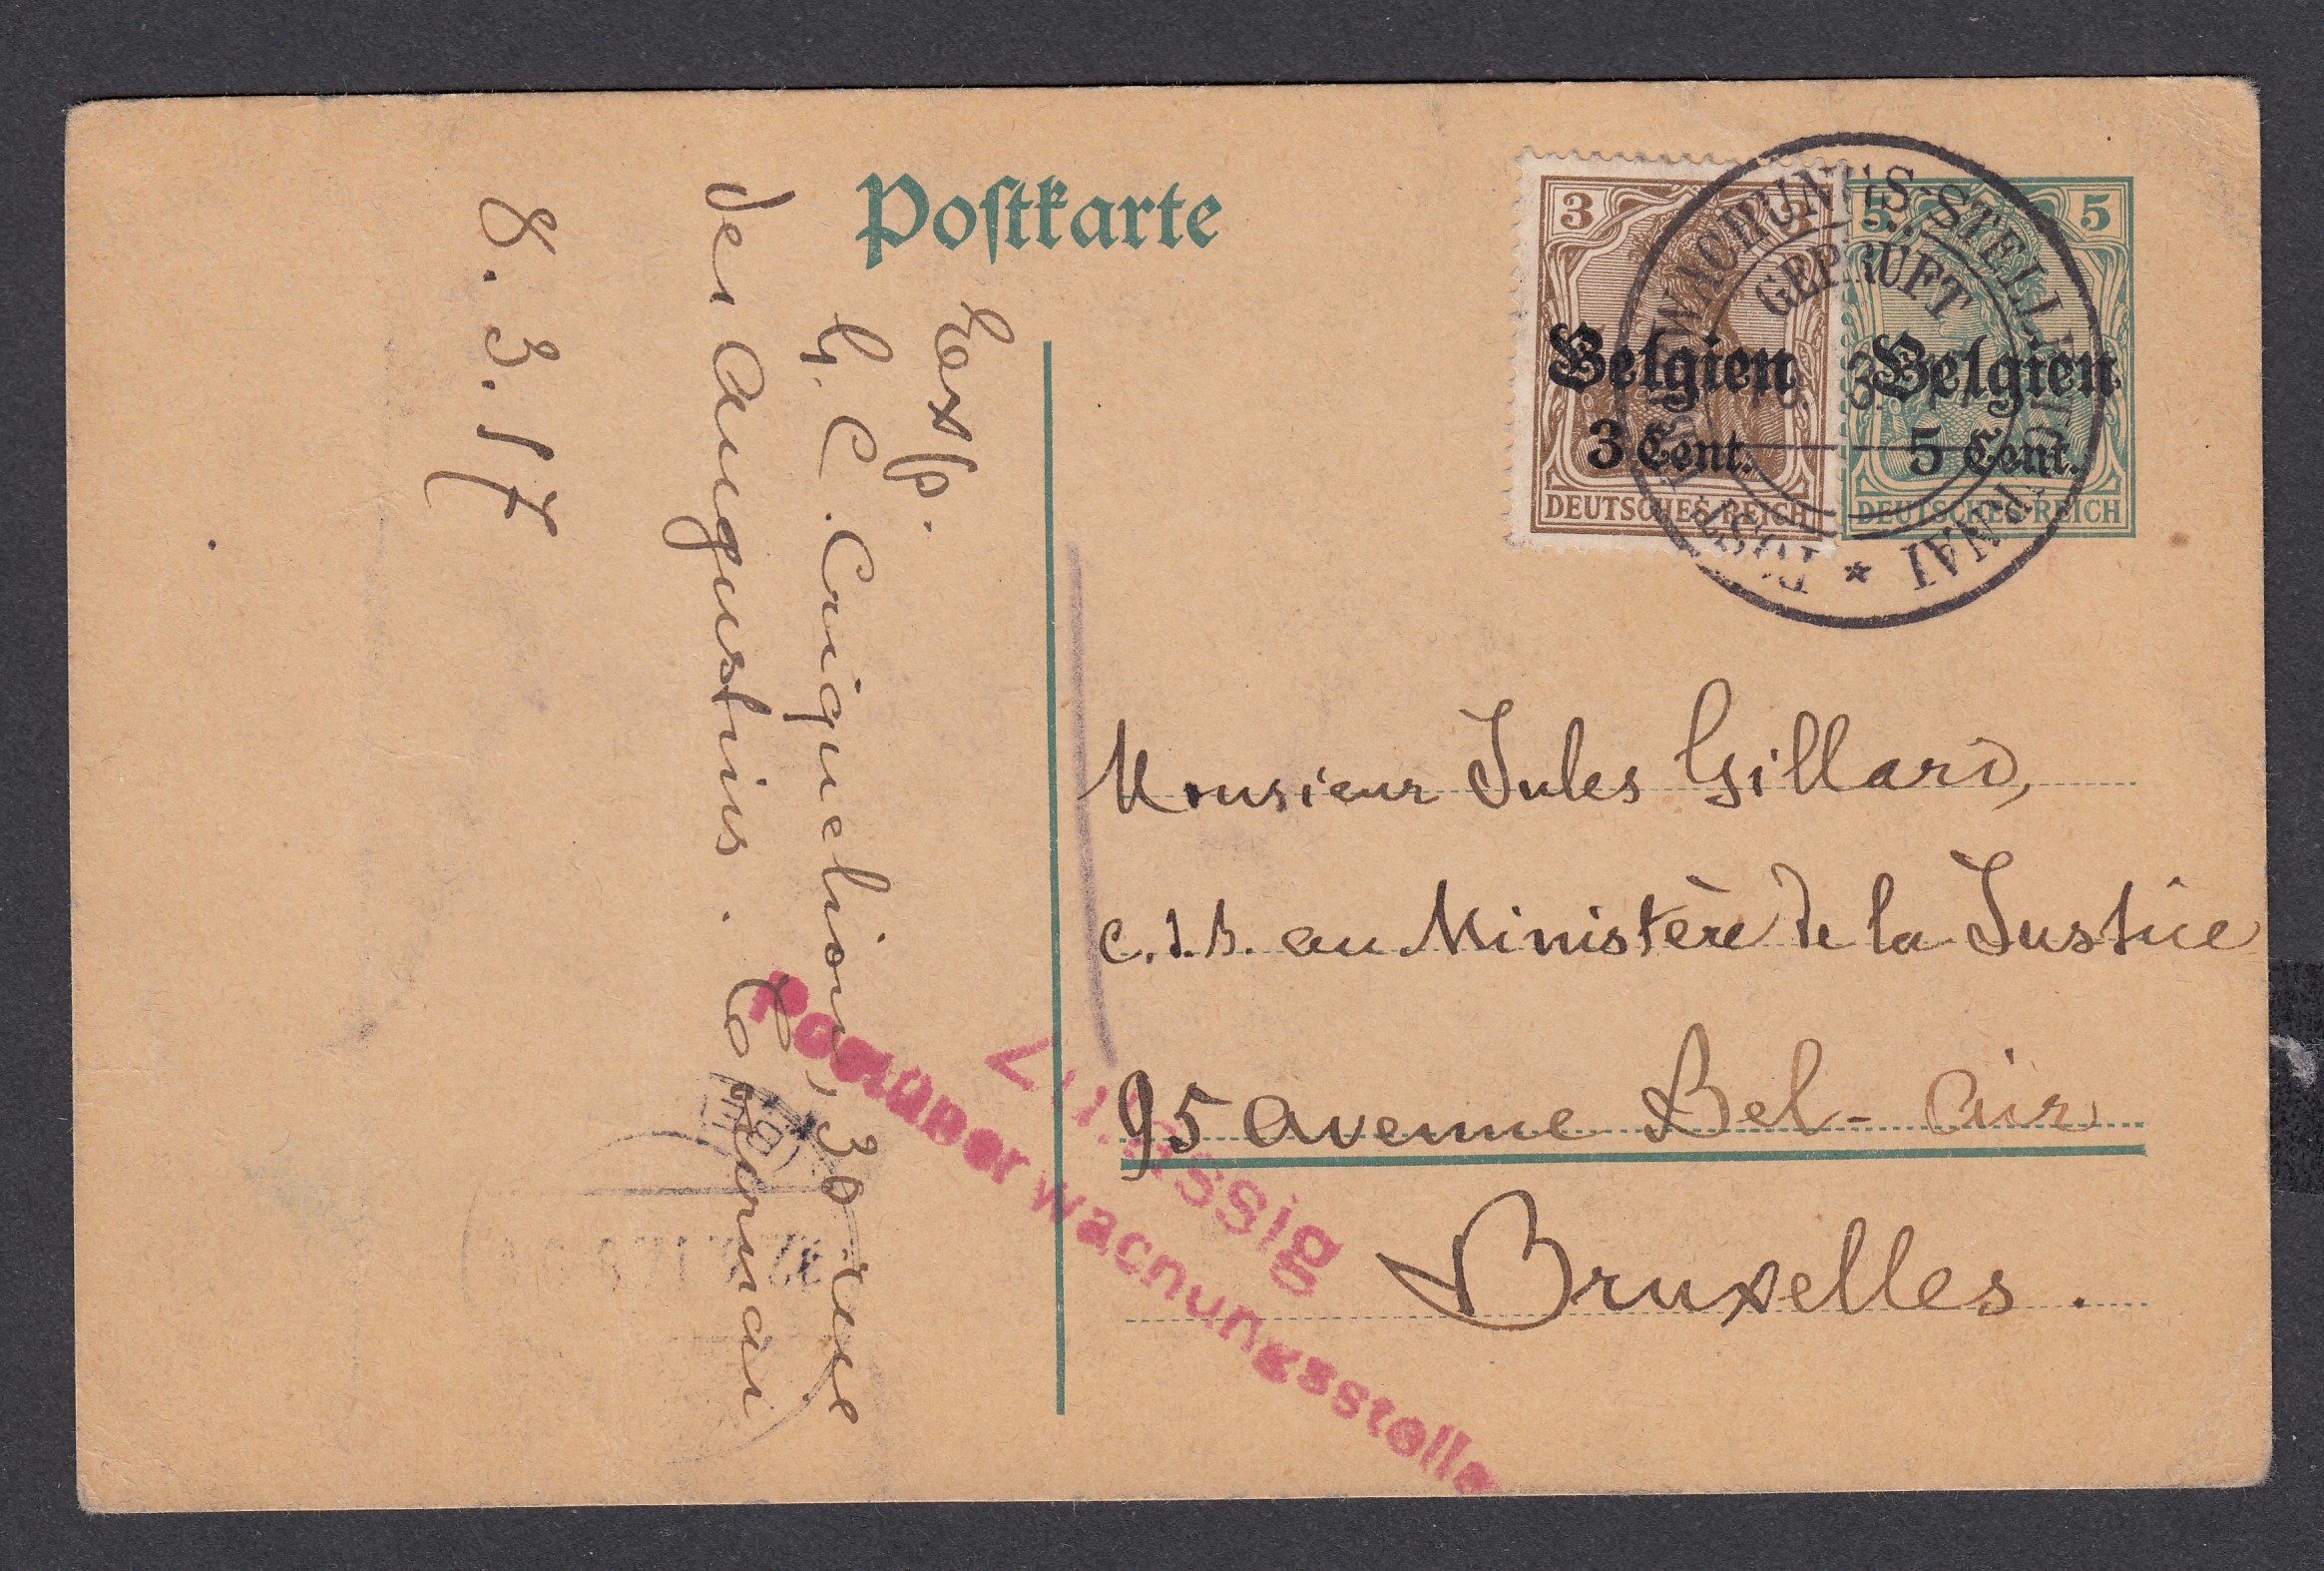 Postkarte
3
5
5
Belgien
3 Cent.
DEUTSCHES REICH
Belgien
5 Cent.
DEUTSCHES REICH
POSTÜBERWACHUNGS STELLE TOURNAI *
GEPRÜFT
Monsieur Jules Gillard,
au Ministère de la Justice
95 avenue Bel-Air
Bruxelles.
Zulässig
Postüberwachungsstelle
Exp.
C. Criquelion, 30 rue
des Augustins. Tournai
8.3.17